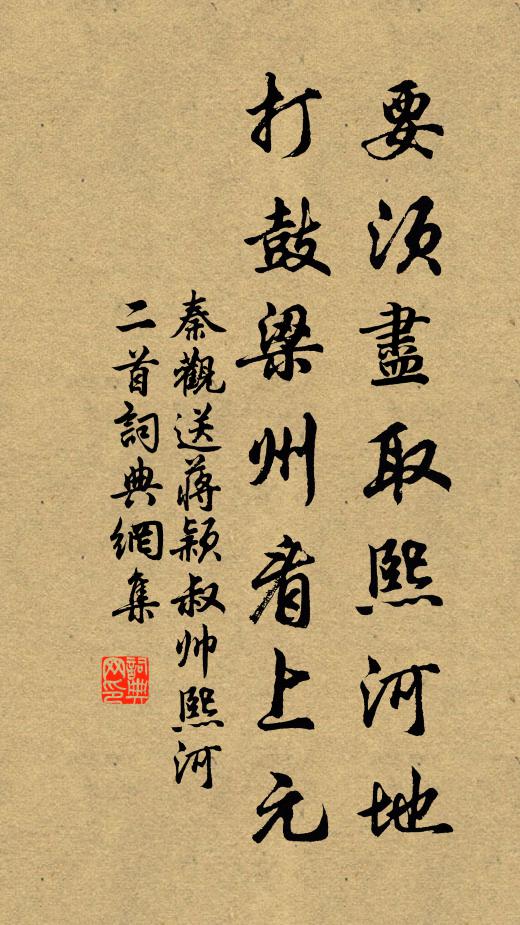 要須盡取熙河地
打鼓梁州看上元
秦觀送蔣穎叔帅熙河
二首詞典網集
詞典网印